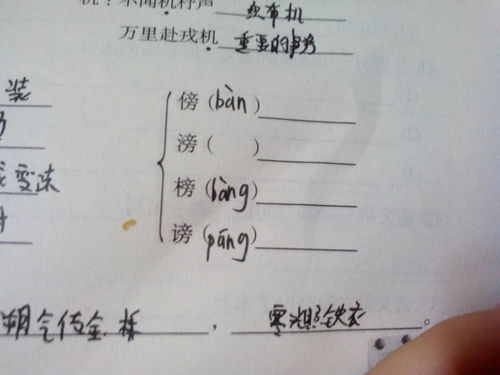 机：不闻机杼声 织布机
万里赴戎机 重要的事务
装
傍（bàn）
滂（ ）
榜（bàng）
谤（pāng）
朔气传金柝，寒光照铁衣。